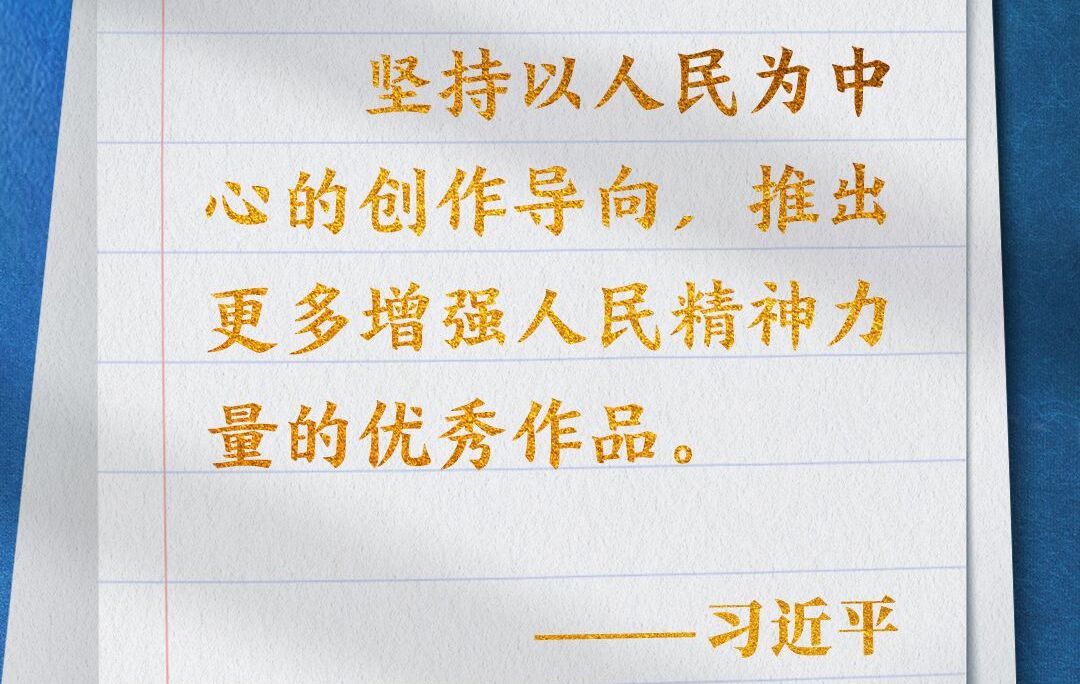 坚持以人民为中
心的创作导向，推出
更多增强人民精神力
量的优秀作品。
——习近平